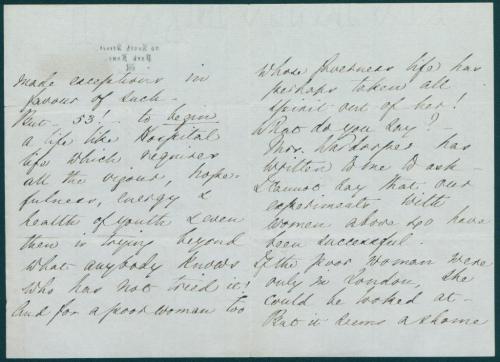 make exceptions in
favour of such -
But 53! - to begin
a life like Hospital
life which requires
all the vigour, hope-
fulness, energy &
health of youth & even
then is trying beyond
what anybody knows
who has not tried it!
And for a poor woman too
whose governess life has
perhaps taken all
spirit out of her!
What do you say? -
Mrs. has
written to me to ask -
I cannot say that our
experiments with
women above 40 have
been successful.
If the poor woman were
only in London, she
could be looked at -
But it seems a shame